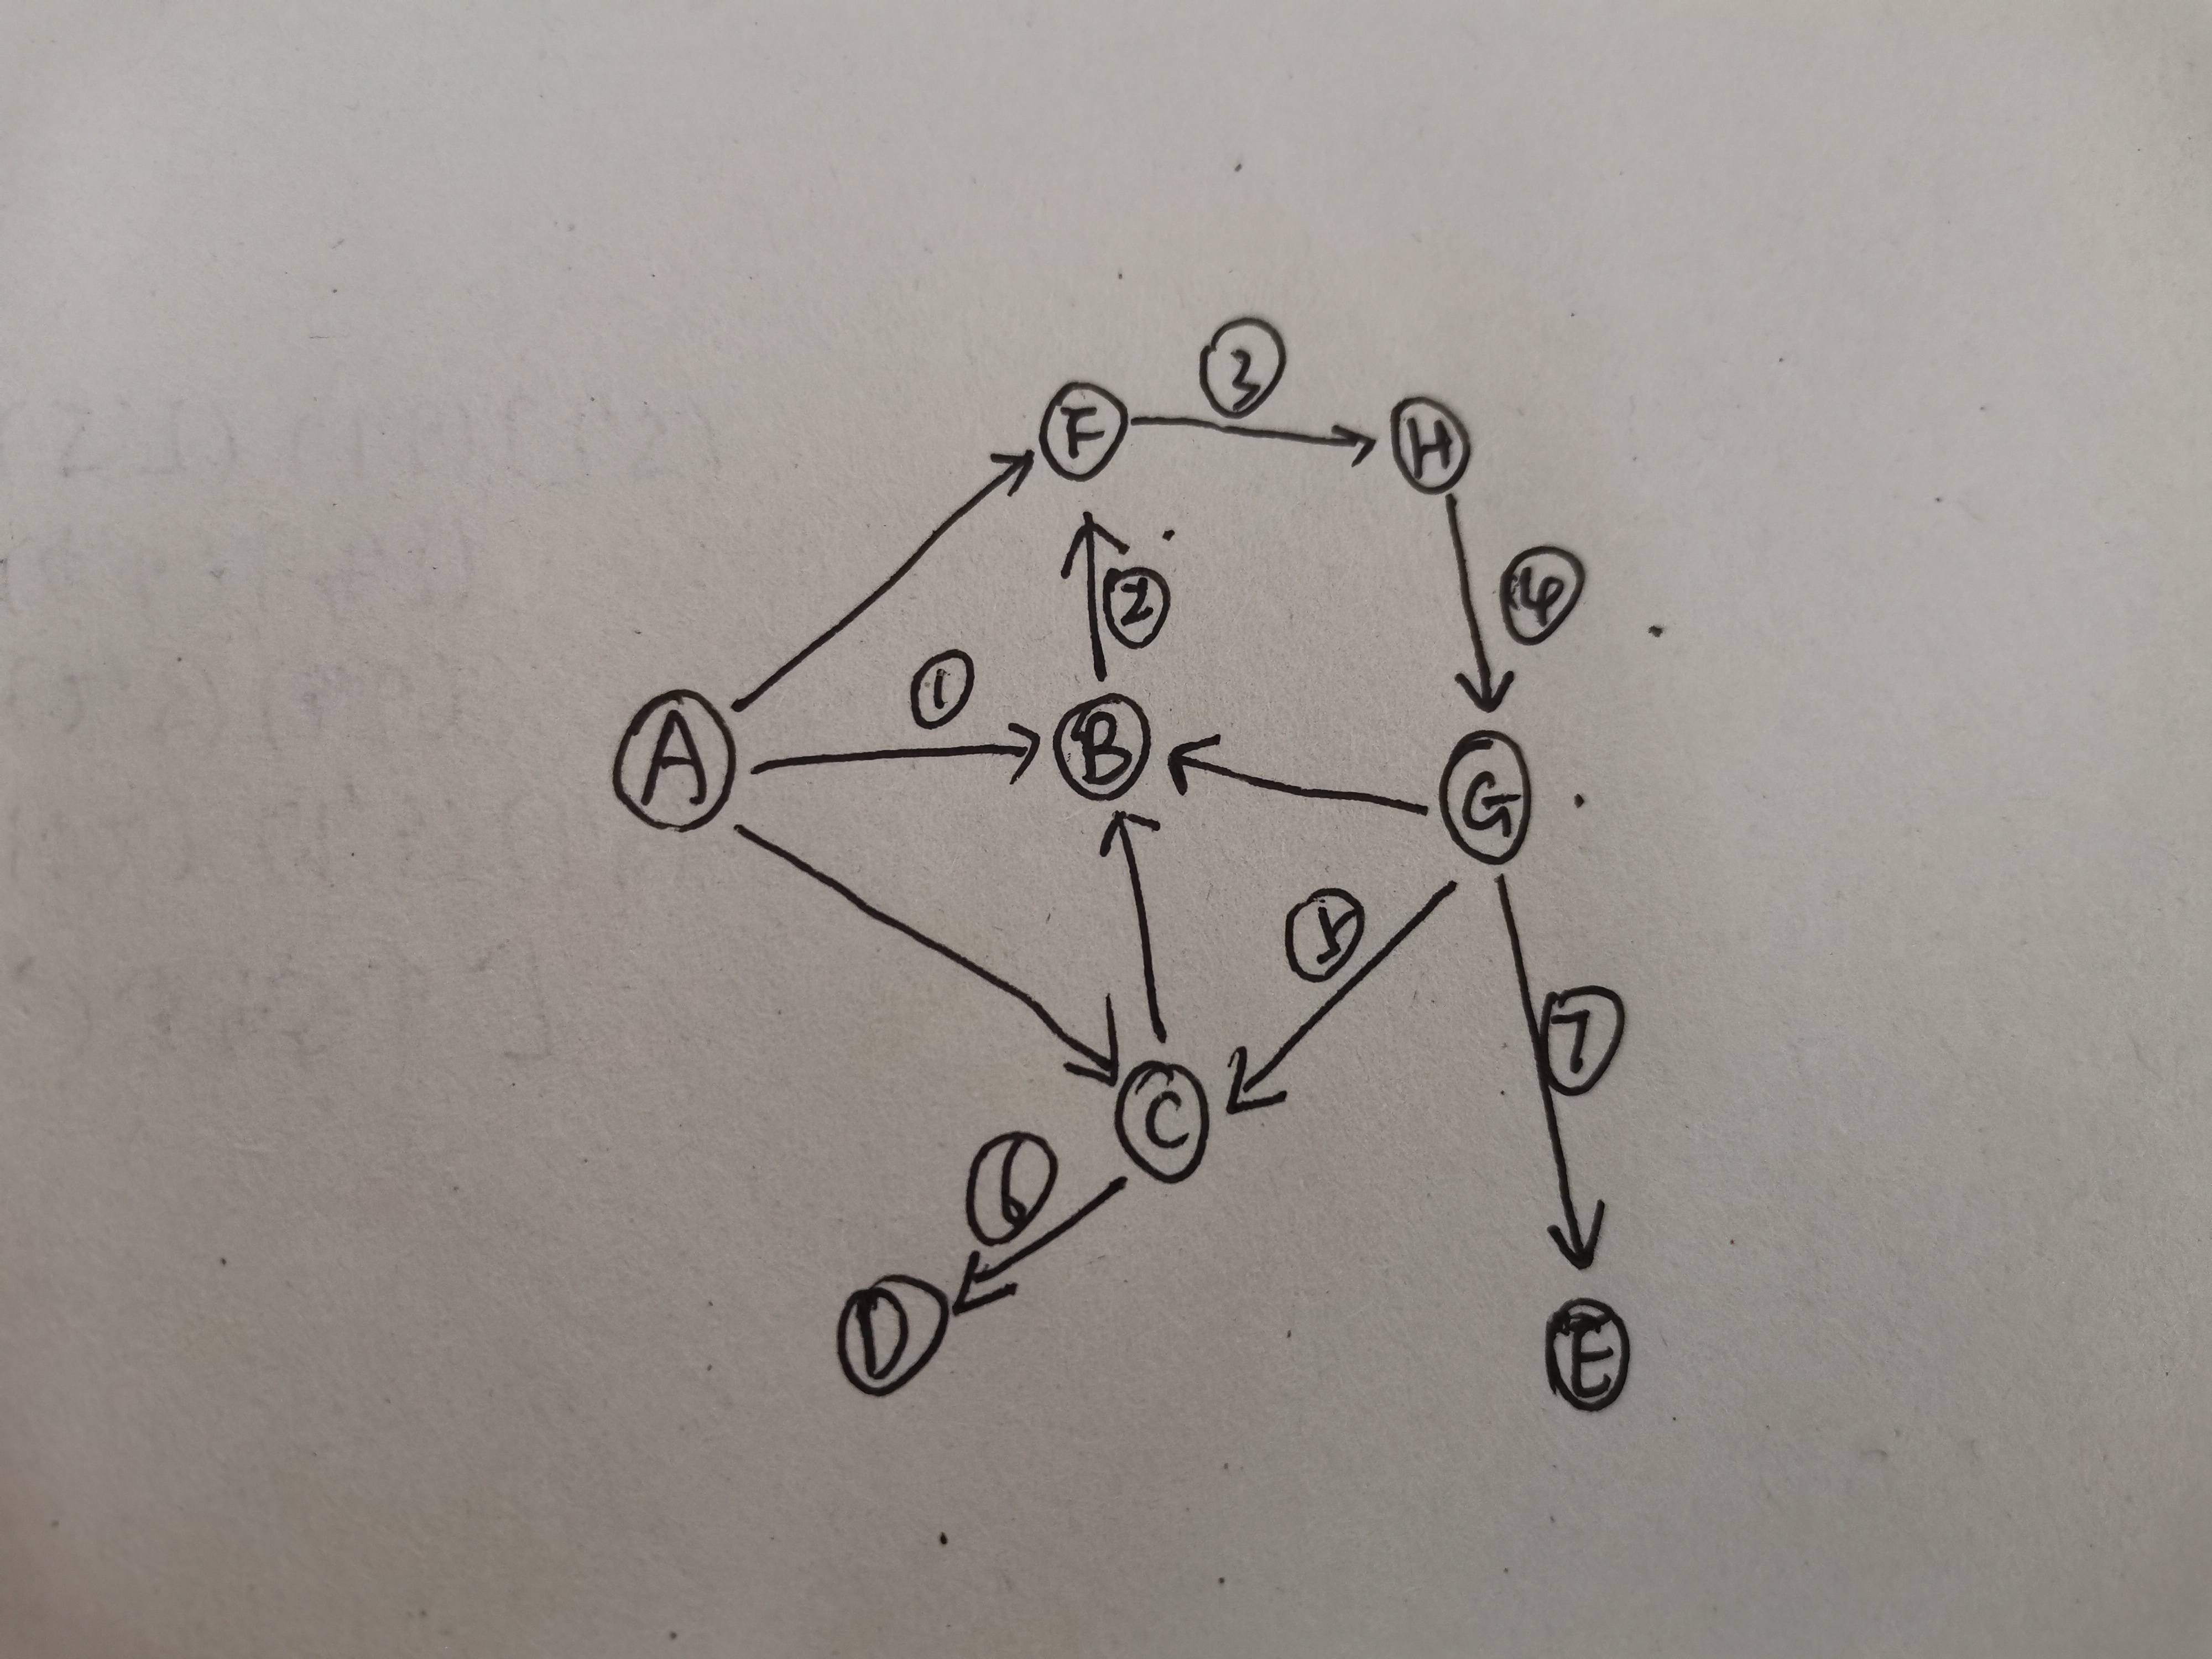 3
F
H
2
4
1
A
B
G
5
7
C
6
D
E